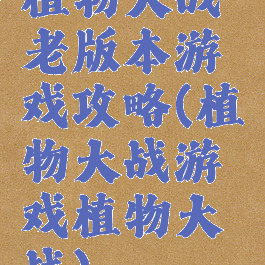 植物大战
老版本游
戏攻略(植
物大战游
戏植物大
战)